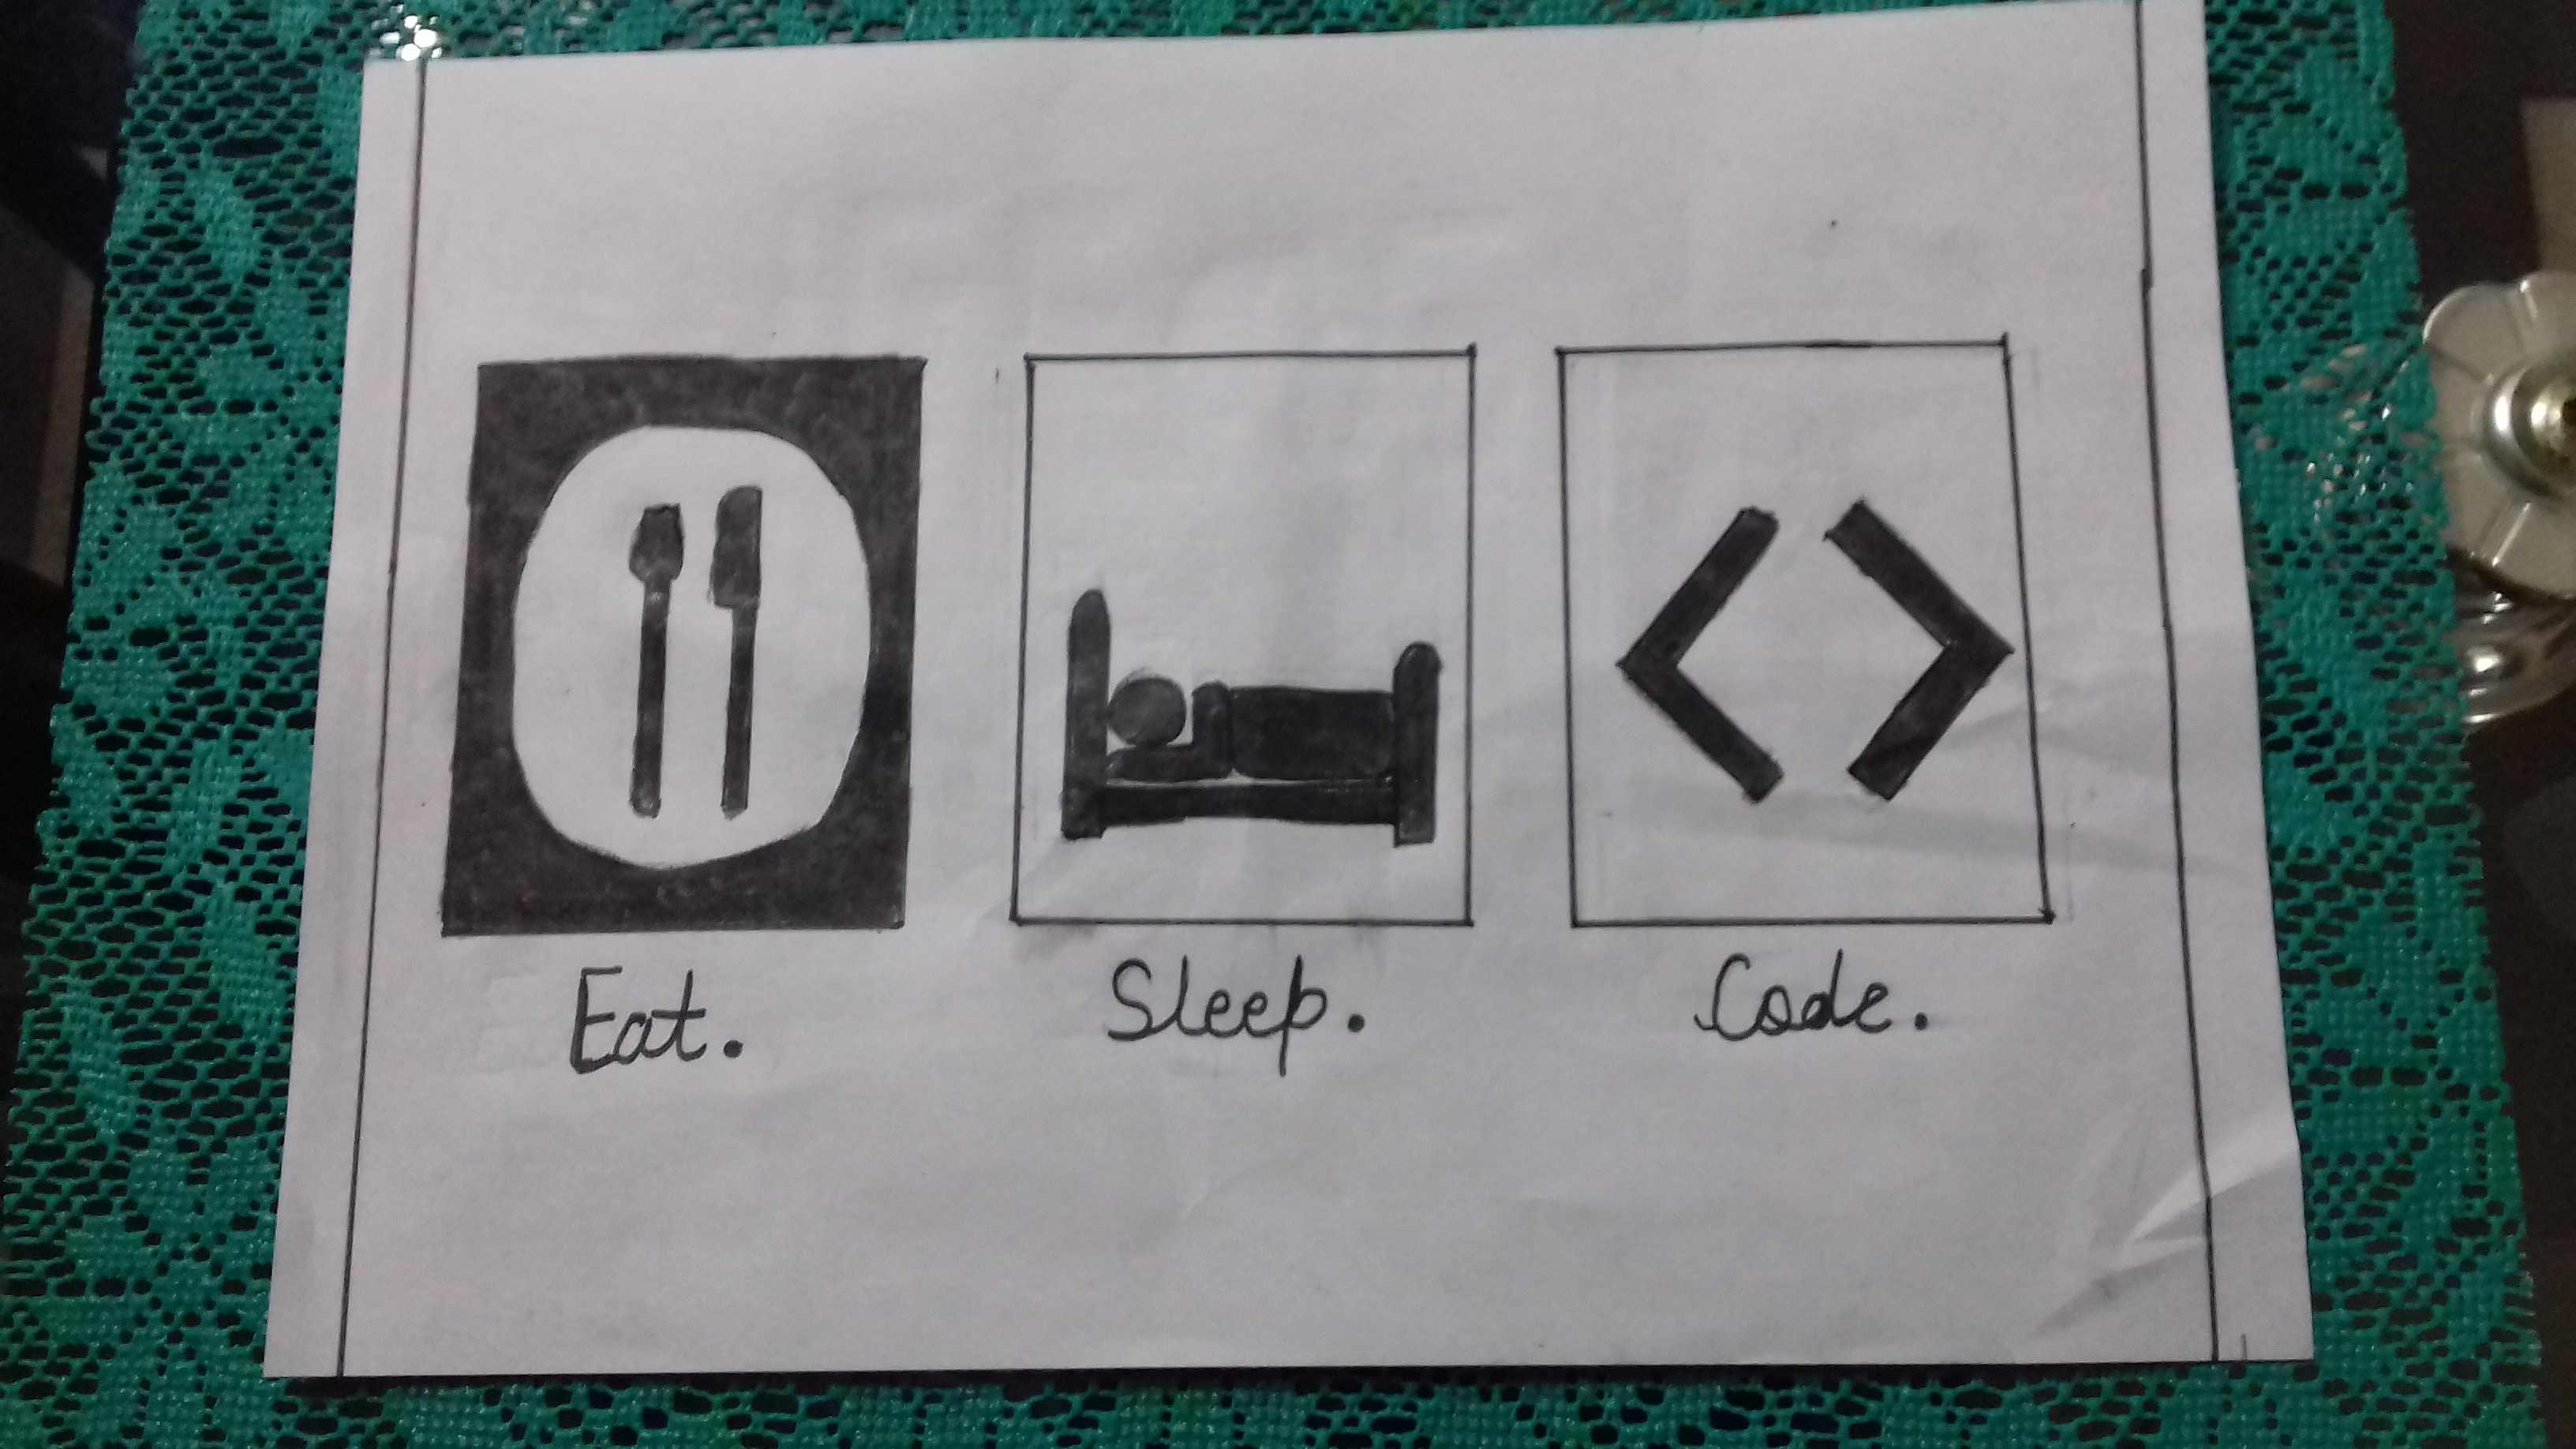 Eat. Sleep. Code.